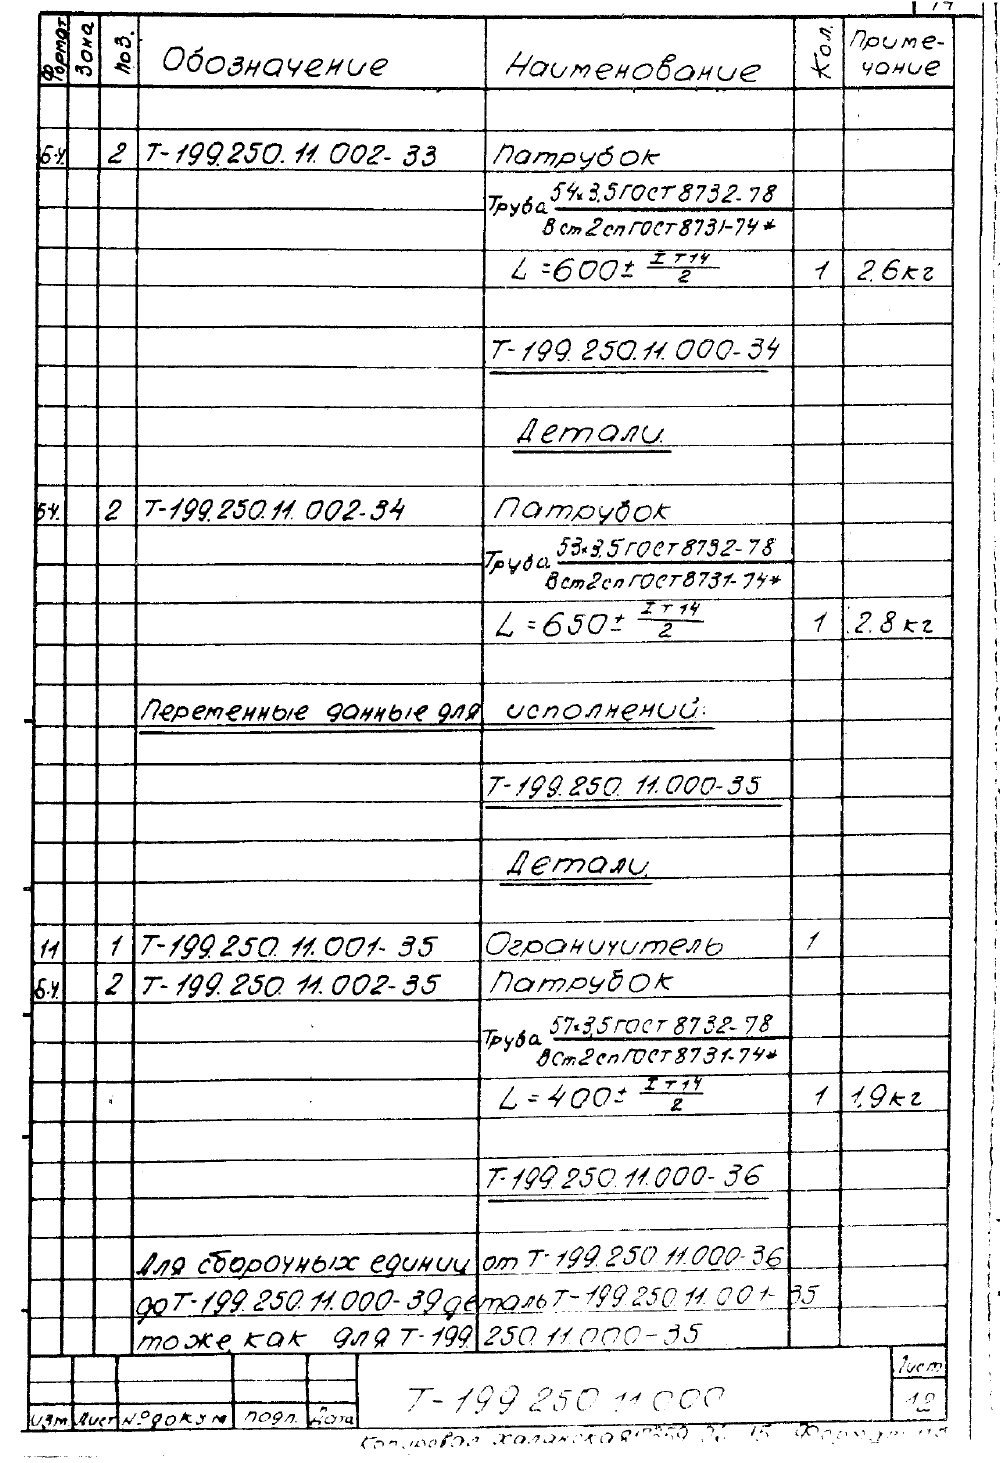 Формат Зона Поз. Обозначение Наименование Кол. Приме-
чание
Б.Ч. 2 Т-199.250.11.002-33 Патрубок
Труба 54×3,5 ГОСТ 8732-78
Вст2сп ГОСТ 8731-74*
L=600± IT14
2 1 2.6кг
Т-199.250.11.000-34
Детали.
БЧ. 2 Т-199.250.11.002-34 Патрубок
Труба 53×3,5 ГОСТ 8732-78
Вст2сп ГОСТ 8731-74*
L=650± IT14
2 1 2.8кг
Переменные данные для исполнений:
Т-199.250.11.000-35
Детали.
11 1 Т-199.250.11.001-35 Ограничитель 1
Б.Ч. 2 Т-199.250.11.002-35 Патрубок
Труба 57×3,5 ГОСТ 8732-78
ВСт2сп ГОСТ 8731-74*
L=400± IT14
2 1 1,9кг
Т-199.250.11.000-36
Для сборочных единиц от Т-199.250.11.000-36
до Т-199.250.11.000-39 деталь Т-199.250.11.001-35
тоже как для Т-199.250.11.000-35
Лист
Т-199 250 11 000
Изм Лист № докум подп. Дата
Копировал